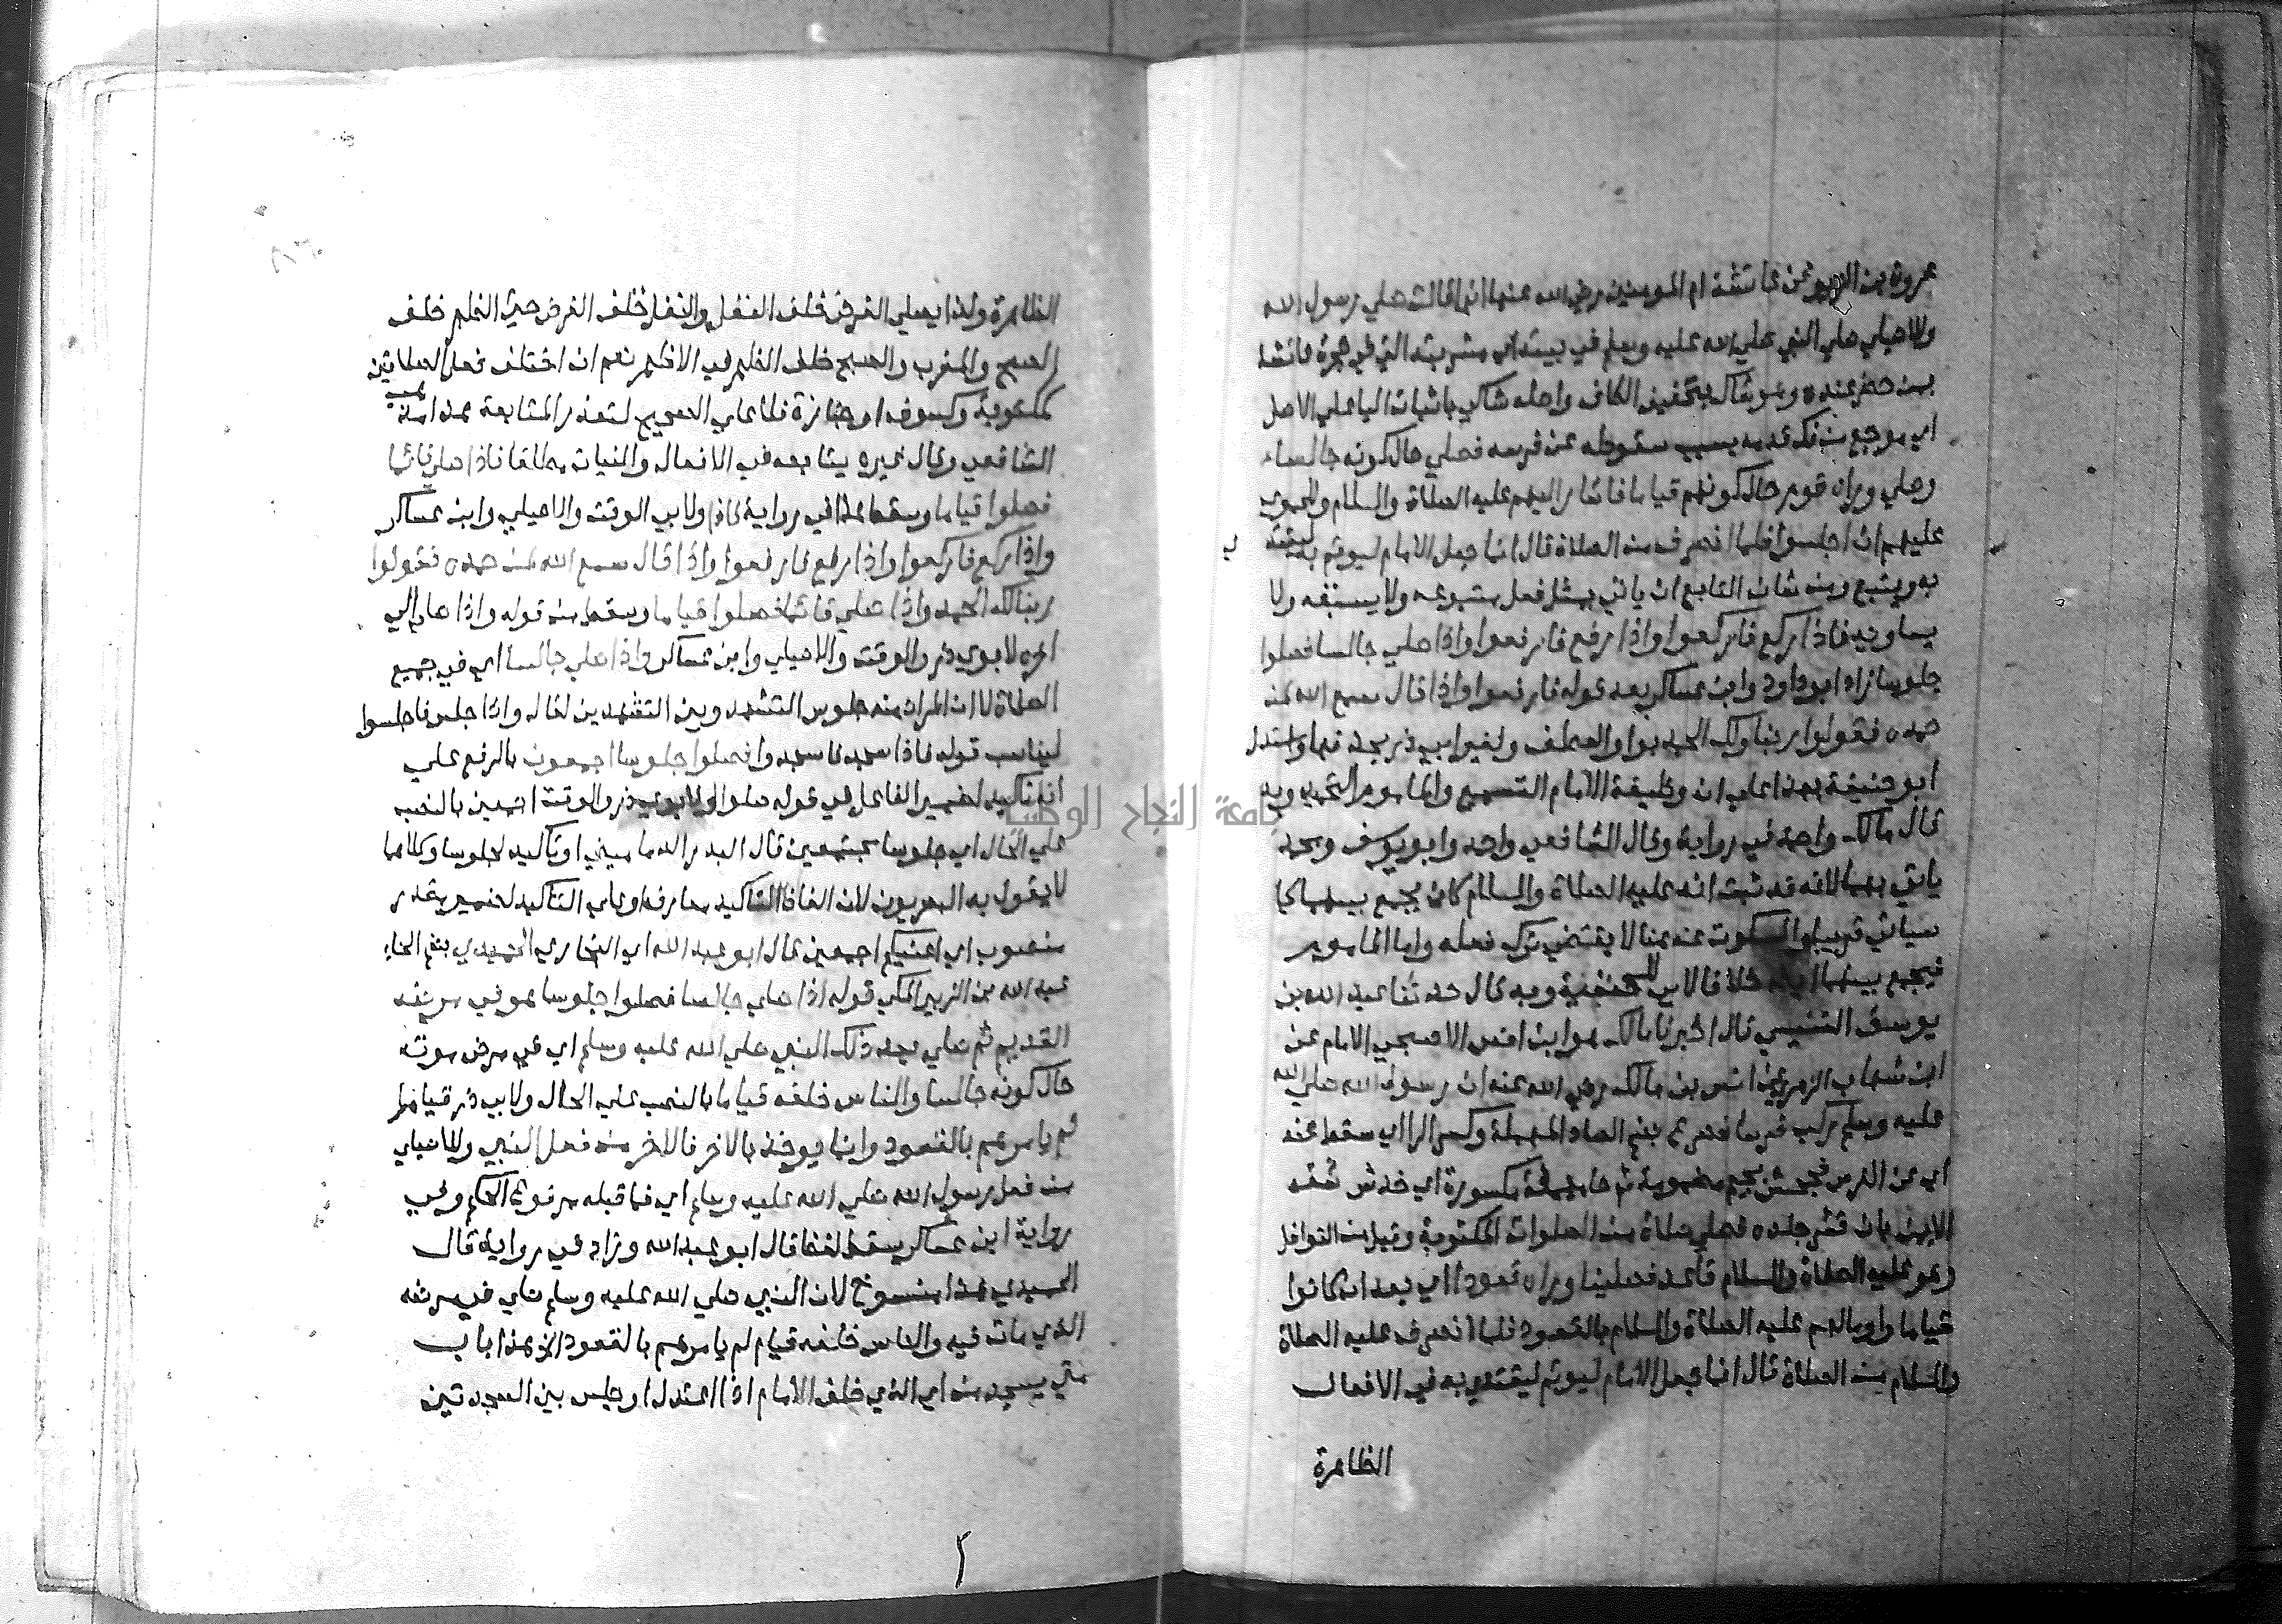 عروة بن الزبير عن عائشة ام المومنين رضي الله عنها انها قالت صلي رسول الله
وللاصيلي صلي النبي صلي الله عليه وسلم في بيته اي مشربته التي في حجرة عائشة
بمن حضر عنده وهو شاك بتخفيف الكاف واصله شاكي باثبات اليا علي الاصل
اي موجع من فك قدمه بسبب سقوطه عن فرسه فصلي حال كونه جالسا
وصلي وراه قوم حال كونهم قياما فاشار اليهم عليه الصلاة والسلام وللحموي
عليهم ان اجلسوا فلما انصرف من الصلاة قال انما جعل الامام ليوتم به ليقتد
به ويتبع ومن شان التابع ان ياتي بمثل فعل متبوعه ولا يسبقه ولا
يساويه فاذا ركع فاركعوا واذا رفع فارفعوا واذا صلي جالسا فصلوا
جلوسا زاد ابو داود وابن عساكر بعد قوله فارفعوا واذا قال سمع الله لمن
حمده فقولوا ربنا ولك الحمد بواو العطف ولغير ابي ذر بحذفها واستدل
ابو حنيفة بهذا علي ان وظيفة الامام التسميع والماموم التحميد وبه
قال مالك واحمد في رواية وقال الشافعي واحمد وابو يوسف ومحمد
ياتي بهما لانه قد ثبت انه عليه الصلاة والسلام كان يجمع بينهما كما
سياتي قريبا والسكوت عنه هنا لا يقتضي ترك فعله واما الماموم
فيجمع بينهما ايضا خلافا للحنفية وبه قال حدثنا عبد الله بن
يوسف التنيسي قال اخبرنا مالك هو ابن انس الاصبحي الامام عن
ابن شهاب الزهري عن انس بن مالك رضي الله عنه ان رسول الله صلي الله
عليه وسلم ركب فرسا فصرع بضم الصاد المهملة وكسر الرا اي سقط عنه
اي عن الفرس فجحش بجيم مضمومة ثم حا مهملة مكسورة اي خدش شقه
الايمن بان قشر جلده فصلي صلاة من الصلوات المكتوبة وقيل من النوافل
وهو عليه الصلاة والسلام قاعد فصلينا وراه قعودا اي بعد ان كانوا
قياما واومالهم عليه الصلاة والسلام بالقعود فلما انصرف عليه الصلاة
والسلام من الصلاة قال انما جعل الامام ليوتم ليقتدي به في الافعال
الظاهرة
الظاهرة ولذا يصلي الفرض خلف النفل والنفل خلف الفرض حتي الظهر خلف
الصبح والمغرب والصبح خلف الظهر في الاظهر نعم ان اختلف فعل الصلاتين
كمكتوبة وكسوف او جنازة فلا علي الصحيح لتعذر المتابعة هذا مذهب
الشافعي وقال غيره يتابعه في الافعال والنيات مطلقا فاذا صلي قائما
فصلوا قياما وسقط هذا في رواية ولابي الوقت والاصيلي وابن عساكر
واذا ركع فاركعوا واذا رفع فارفعوا واذا قال سمع الله لمن حمده فقولوا
ربنا لك الحمد واذا صلي قائما فصلوا قياما وسقط من قوله واذا صلي الي
اخره لابوي ذر والوقت والاصيلي وابن عساكر واذا صلي جالسا اي في جميع
الصلاة لا ان المراد منه جلوس التشهد وبين التشهدين لقال واذا جلس فاجلسوا
ليناسب قوله فاذا سجد فاسجدوا فصلوا جلوسا اجمعون بالرفع علي
انه تاكيد لضمير الفاعل في قوله صلوا ولابوي ذر والوقت اجمعين بالنصب
علي الحال اي جلوسا مجتمعين قال البدر الدماميني او تاكيد لجلوسا وكلاهما
لا يقول به البصريون لان الفاظ التاكيد معارف او علي التاكيد لضمير مقدر
منصوب اي اعنيكم اجمعين قال ابو عبد الله اي البخاري الحميدي بضم الحاء
عبد الله بن الزبير المكي قوله اذا صلي جالسا فصلوا جلوسا هو في مرضه
القديم ثم صلي بعد ذلك النبي صلي الله عليه وسلم اي في مرض موته
حال كونه جالسا والناس خلفه قياما بالنصب علي الحال ولابي ذر قيام
لم يامرهم بالقعود وانما يوخذ بالاخر فالاخر من فعل النبي وللاصيلي
من فعل رسول الله صلي الله عليه وسلم اي فما قبله مرفوع الحكم وفي
رواية ابن عساكر سقط لفظ قال ابو عبد الله وزاد في رواية قال
الحميدي هذا منسوخ لان النبي صلي الله عليه وسلم صلي في مرضه
الذي مات فيه والناس خلفه قيام لم يامرهم بالقعود هذا باب
متي يسجد من اي الذي خلف الامام اذا اعتدل او جلس بين السجدتين
جامعة النجاح الوطنية